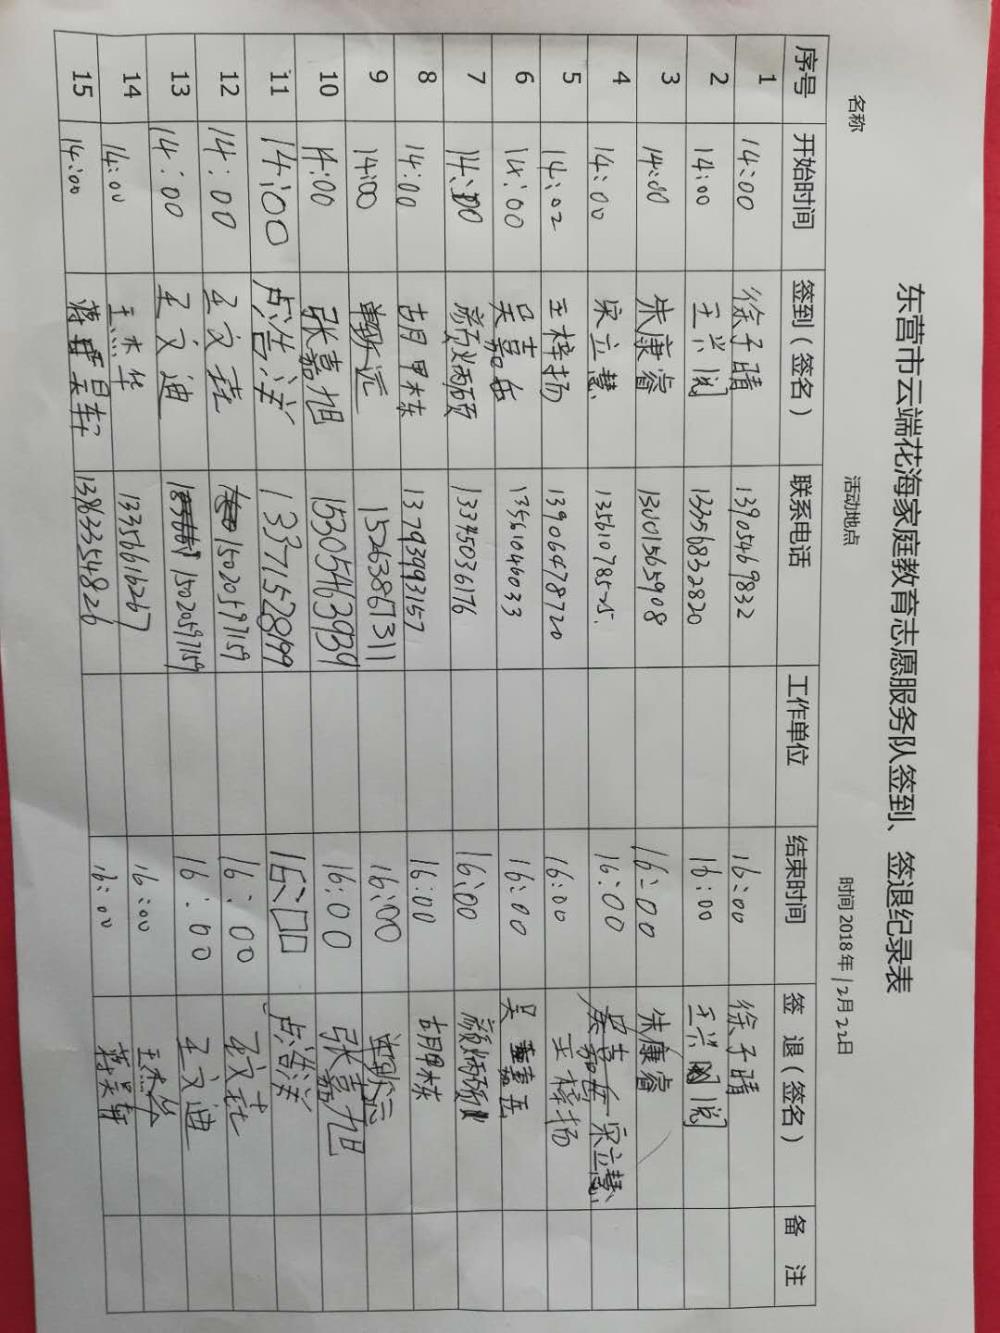 东营市云端花海家庭教育志愿服务队签到、签退纪录表
名称 活动地点 时间2018年12月22日
序号 开始时间 签到(签名) 联系电话 工作单位 结束时间 签 退(签名) 备 注
1 14:00 徐子晴 13905469832 16:00 徐子晴
2 14:00 王兴阅 13356832820 16:00 王兴阅
3 14:00 朱康睿 13001565908 16:00 朱康睿
4 14:00 宋立慧 16:00 宋立慧
5 14:02 王梓扬 13906478720 16:00 王梓扬
6 14:00 吴嘉岳 13561046033 16:00 吴嘉岳
7 14:00 颜炳硕 13345036176 16:00 颜炳硕
8 14:00 胡甲栋 13793993157 16:00 胡甲栋
9 14:00 15263861311 16:00
10 14:00 张嘉旭 15305463939 16:00 张嘉旭
11 14:00 卢浩洋 13371528899 16:00 卢浩洋
12 14:00 王文 15020597159 16:00 王文
13 14:00 王文迪 15020597159 16:00 王文迪
14 14:00 王杰华 13356616267 16:00 王杰华
15 14:00 蒋昊轩 13963354826 16:00 蒋昊轩